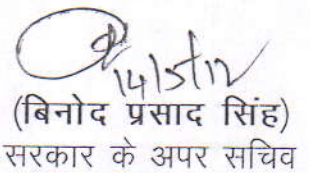 14/5/12
(बिनोद प्रसाद सिंह)
सरकार के अपर सचिव